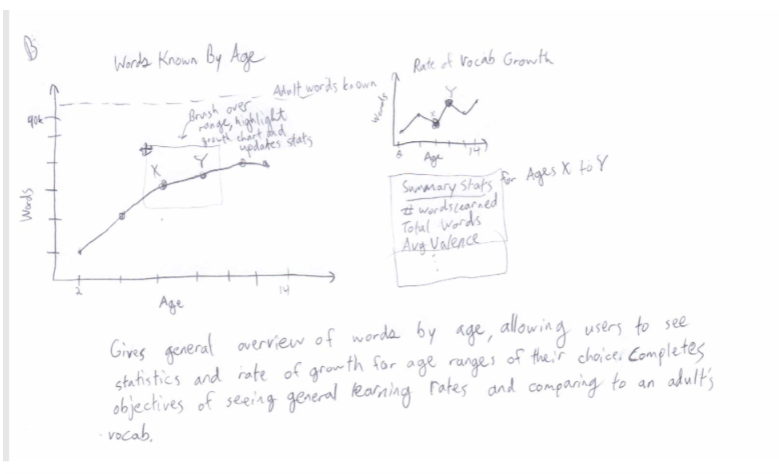 B
Words Known By Age
Adult words known
40k
Brush over
range, highlight
growth chart and
updates stats
X
Y
Words
2
14
Age
Rate of Vocab Growth
Words
X
Y
Age
14
Summary Stats for Ages X to Y
# words learned
Total Words
Avg Valence
Gives general overview of words by age, allowing users to see
statistics and rate of growth for age ranges of their choice. Completes
objectives of seeing general learning rates and comparing to an adult's
vocab.